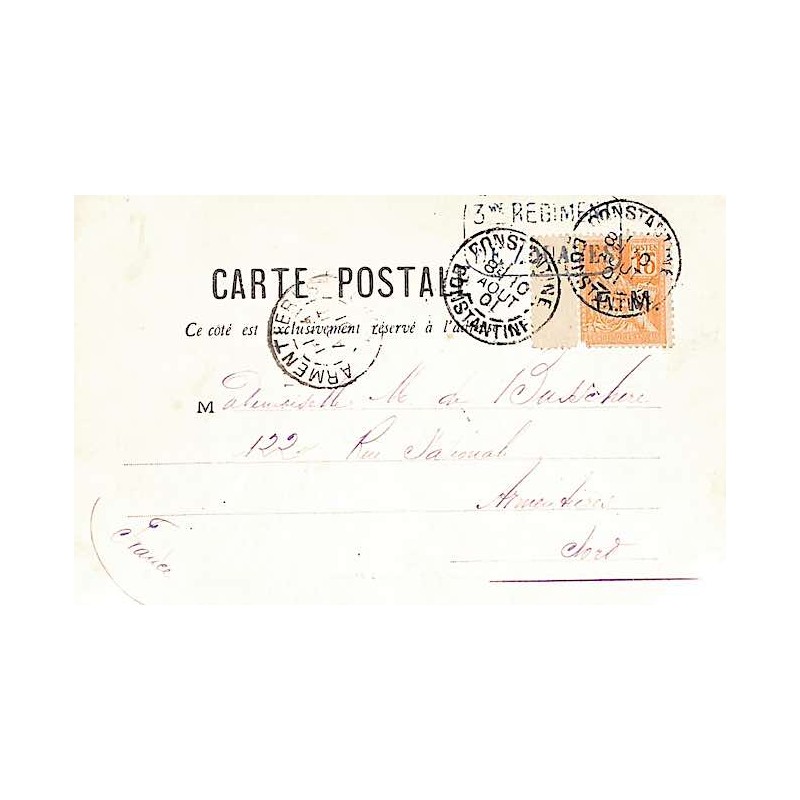 3me REGIMENT
CONSTANTINE
8E 10
AOUT
01
CONSTANTINE
CONSTANTINE
10
AOUT
01
CONSTANTINE
15
F. M.
CARTE POSTALE
Ce côté est exclusivement réservé à l'adresse
ARMENTIERES
Mademoiselle M de Busschere
122 Rue National
Armentières
Nord
France